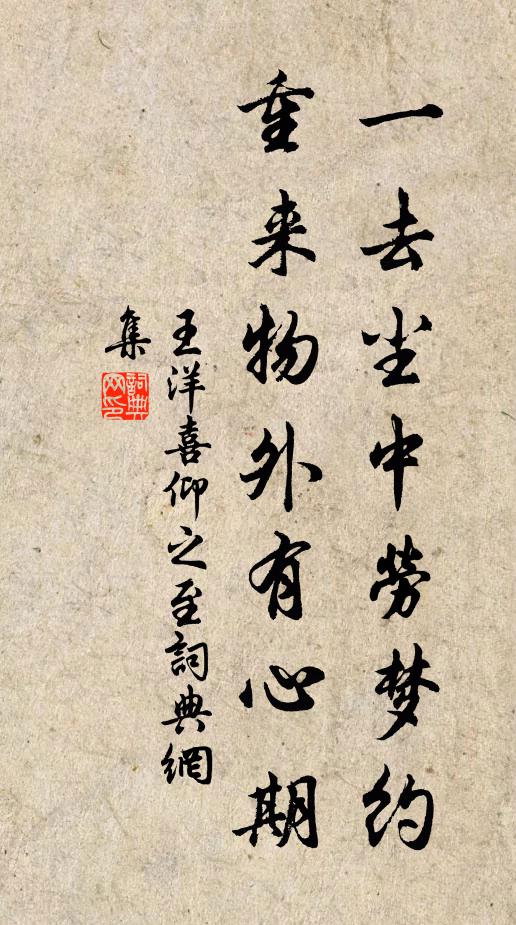 一去尘中勞梦约
重来物外有心期
王洋喜仰之至詞典網
集
詞典
网印